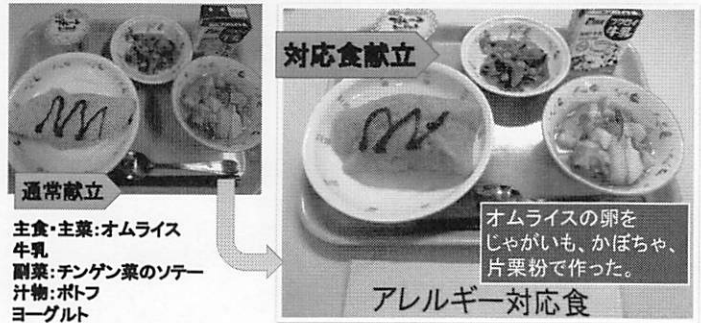 通常献立
主食・主菜:オムライス
牛乳
副菜:チンゲン菜のソテー
汁物:ポトフ
ヨーグルト
対応食献立
牛乳
オムライスの卵を
じゃがいも、かぼちゃ、
片栗粉で作った。
アレルギー対応食